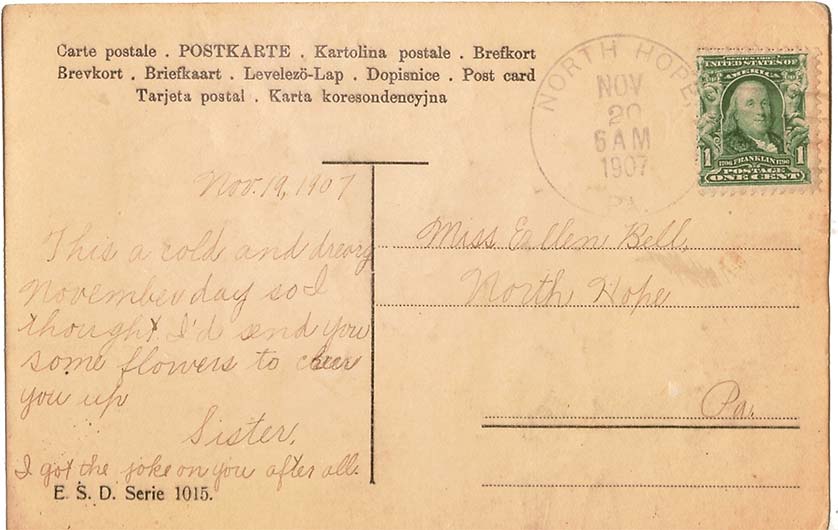 Carte postale . POSTKARTE . Kartolina postale . Brefkort
Brevkort . Briefkaart . Levelezö-Lap . Dopisnice . Post card
Tarjeta postal . Karta koresondencyjna
NORTH HOPE
NOV
20
6 AM
1907
PA
SERIES 1902
UNITED STATES OF
AMERICA
1 1706 FRANKLIN 1790 1
POSTAGE
ONE CENT
Nov. 19, 1907
This a cold and dreary
November day so I
thought I'd send you
some flowers to cheer
you up
Sister.
I got the joke on you after all.
Miss Ellen Bell.
North Hope
Pa.
E. S. D. Serie 1015.